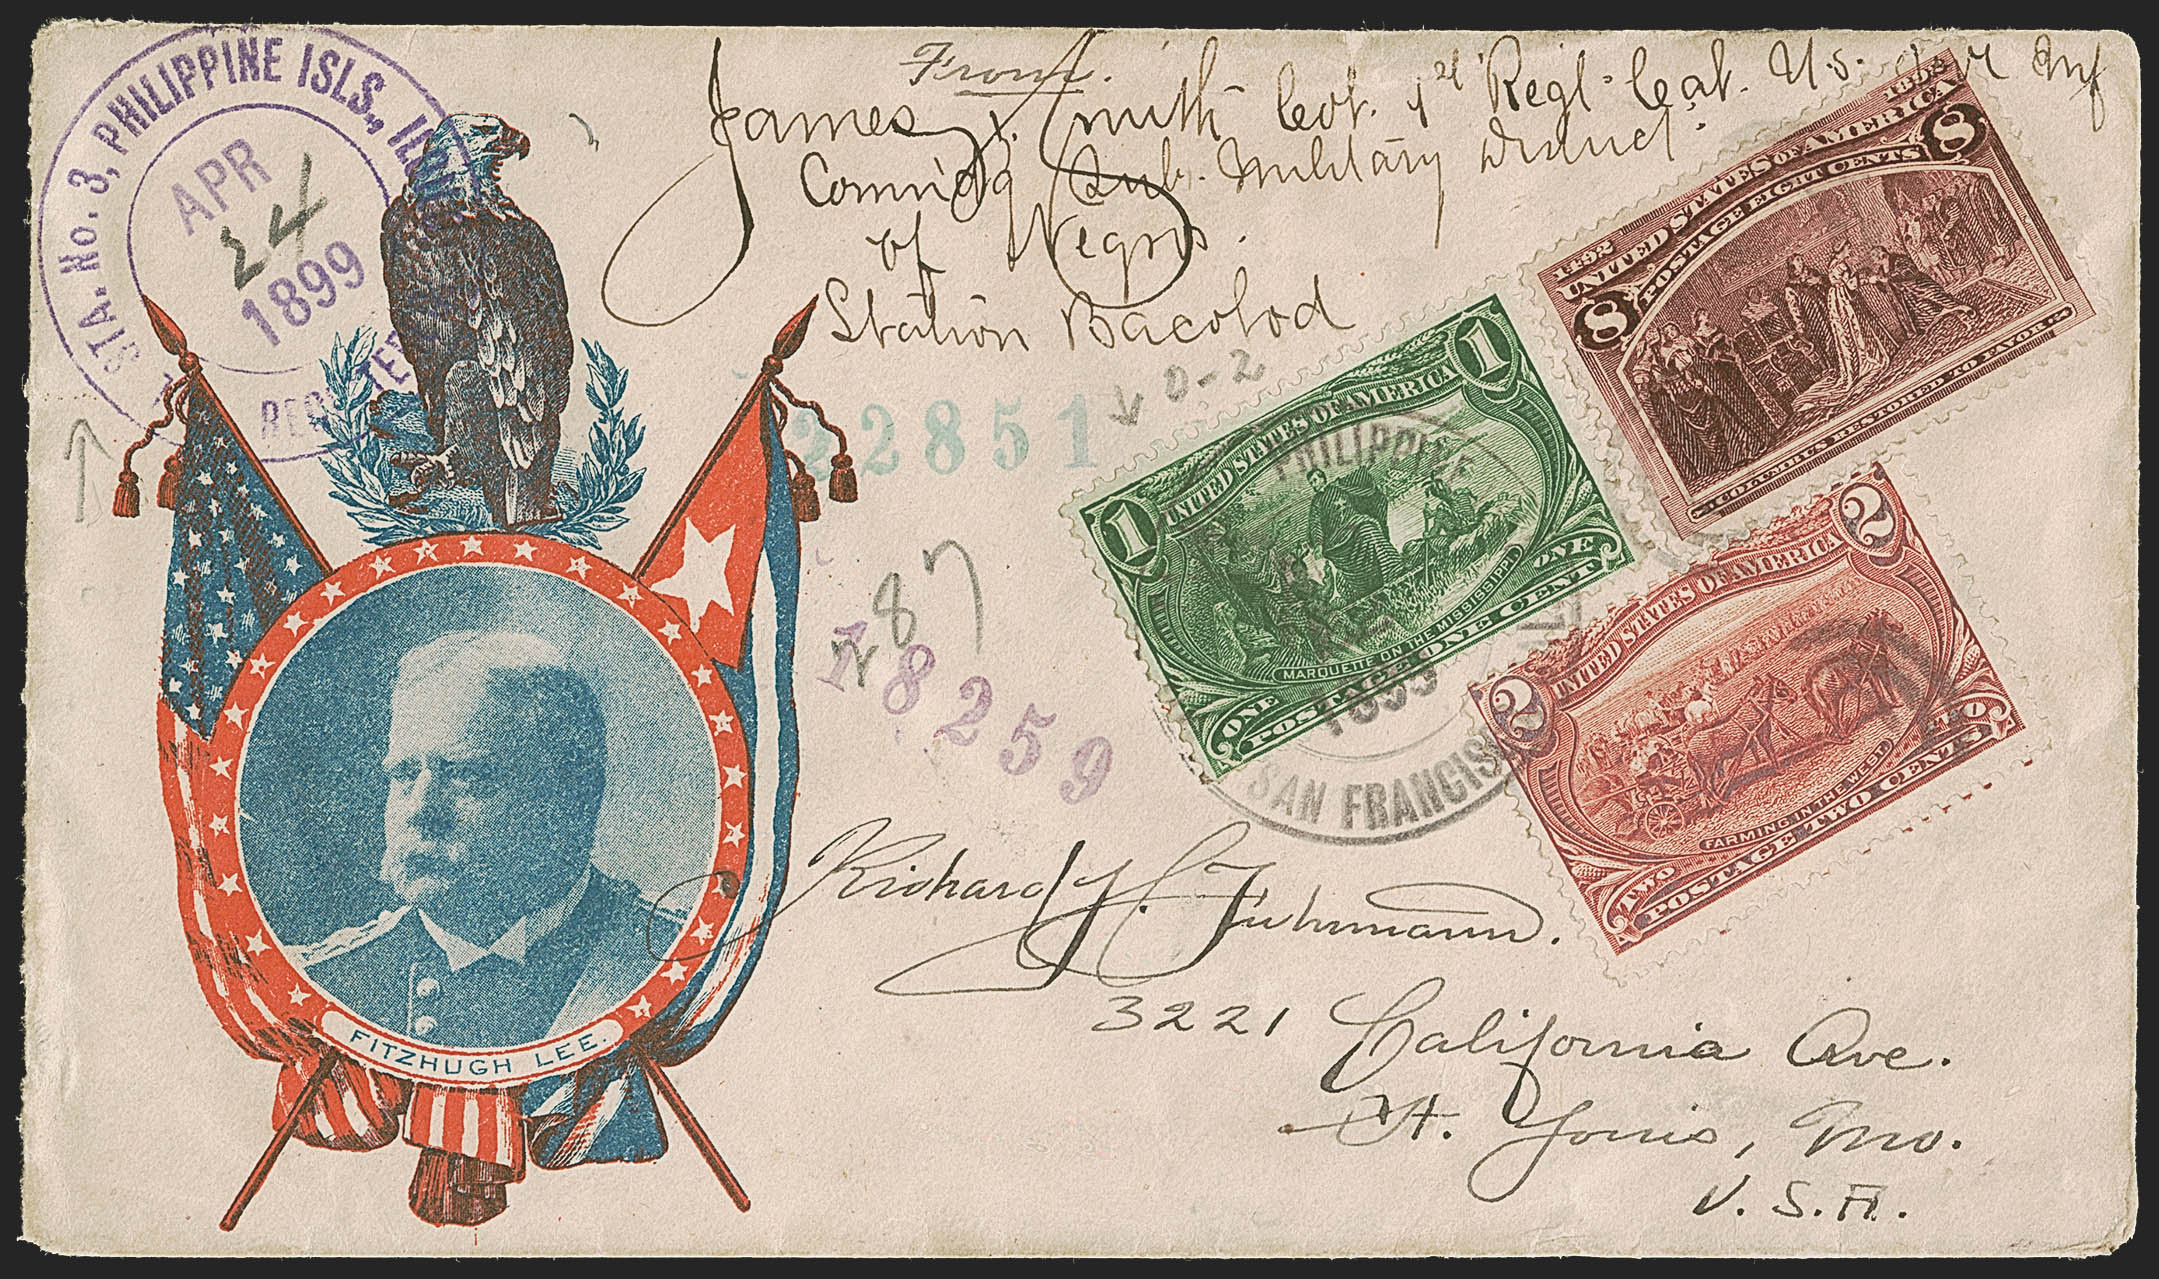 From.
James F. Smith Col. 1st Regt. Cal. U.S. Inf
Comm'dg Sub. Military District
of Negros.
Station Bacolod
STA. No. 3, PHILIPPINE ISLS.,
APR
24
1899
22851
D-2
287
18259
1492
UNITED STATES OF AMERICA
POSTAGE EIGHT CENTS
8
8
COLUMBUS RESTORED TO FAVOR
1
1
UNITED STATES OF AMERICA
MARQUETTE ON THE MISSISSIPPI
ONE
ONE
POSTAGE ONE CENT
PHILIPPINE
1899
SAN FRANCIS
2
2
UNITED STATES OF AMERICA
FARMING IN THE WEST
TWO
TWO
POSTAGE TWO CENTS
Richard J. C. Fuhrmann.
3221 California Ave.
St. Louis, Mo.
U. S. A.
FITZHUGH LEE.